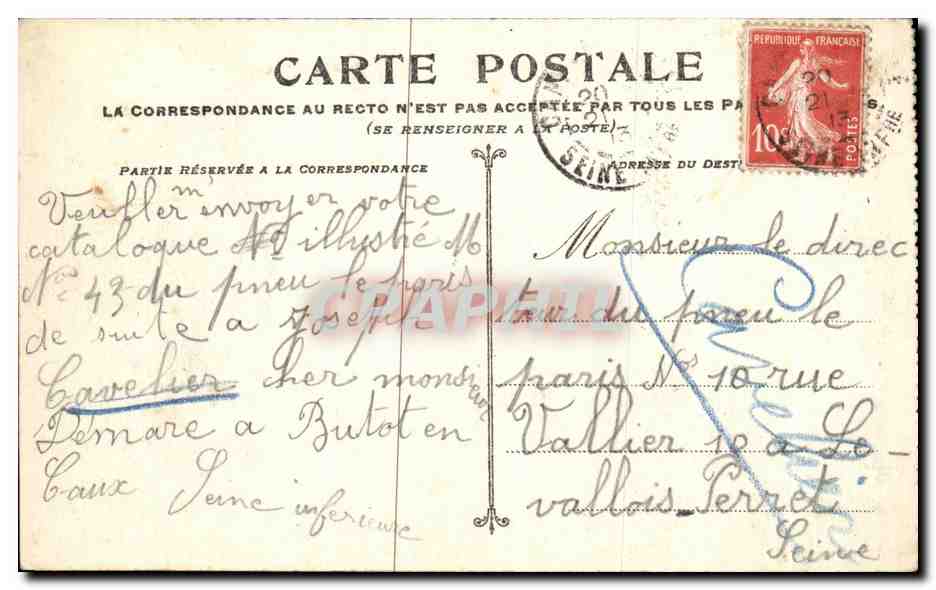 CARTE POSTALE
LA CORRESPONDANCE AU RECTO N'EST PAS ACCEPTÉE PAR TOUS LES PA
(SE RENSEIGNER A LA POSTE)
REPUBLIQUE FRANÇAISE
10
POSTES
20
21
13
SEINE
PARTIE RÉSERVÉE A LA CORRESPONDANCE
ADRESSE DU DEST
Veuller m' envoyer votre
catalogue illustré M
No 43 du pneu le paris
de suite a Joseph
Cavelier cher monsieur
Demare a Butot en
Caux Seine inferieure
Monsieur le direc
teur du pneu le
paris No 10 rue
Vallier 10 a Le-
vallois Perret
Seine
Cavelier
CRAPHIL